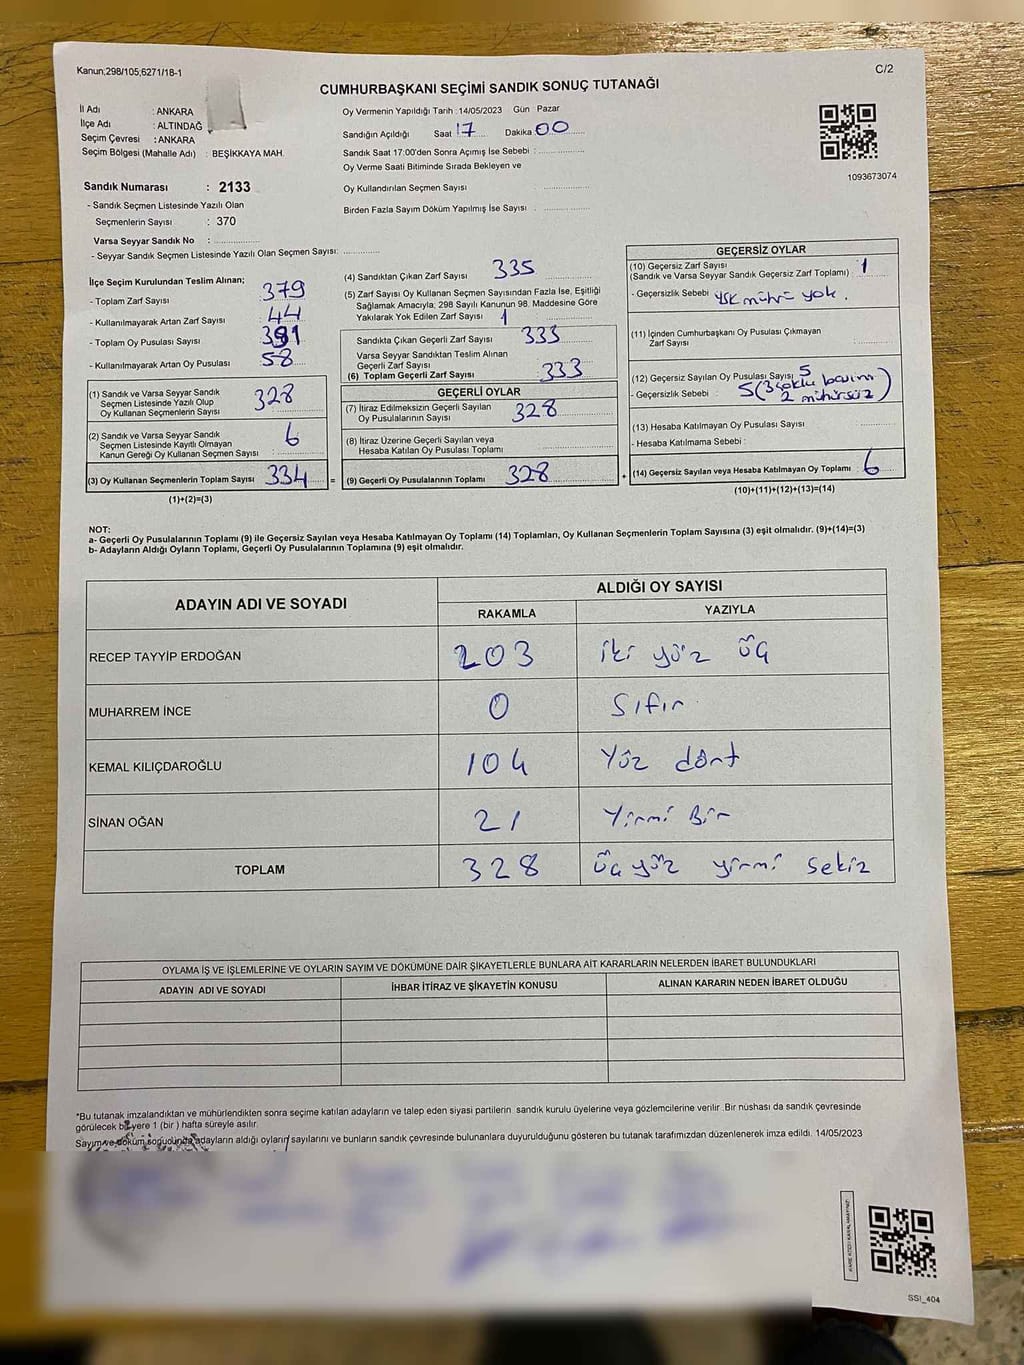 Kanun;298/105;6271/18-1
C/2
CUMHURBAŞKANI SEÇİMİ SANDIK SONUÇ TUTANAĞI
İl Adı : ANKARA
İlçe Adı : ALTINDAĞ
Seçim Çevresi : ANKARA
Seçim Bölgesi (Mahalle Adı) : BEŞİKKAYA MAH.
Oy Vermenin Yapıldığı Tarih : 14/05/2023 Gün Pazar
Sandığın Açıldığı Saat 17 Dakika 00
Sandık Saat 17:00'den Sonra Açımış İse Sebebi :
Oy Verme Saati Bitiminde Sırada Bekleyen ve
Oy Kullandırılan Seçmen Sayısı
Birden Fazla Sayım Döküm Yapılmış İse Sayısı :
1093673074
Sandık Numarası : 2133
- Sandık Seçmen Listesinde Yazılı Olan
Seçmenlerin Sayısı : 370
Varsa Seyyar Sandık No :
- Seyyar Sandık Seçmen Listesinde Yazılı Olan Seçmen Sayısı:
İlçe Seçim Kurulundan Teslim Alınan;
- Toplam Zarf Sayısı 379
- Kullanılmayarak Artan Zarf Sayısı 44
- Toplam Oy Pusulası Sayısı
- Kullanılmayarak Artan Oy Pusulası 58
(1) Sandık ve Varsa Seyyar Sandık
Seçmen Listesinde Yazılı Olup
Oy Kullanan Seçmenlerin Sayısı 328
(2) Sandık ve Varsa Seyyar Sandık
Seçmen Listesinde Kayıtlı Olmayan
Kanun Gereği Oy Kullanan Seçmen Sayısı : 6
(3) Oy Kullanan Seçmenlerin Toplam Sayısı 334 =
(1)+(2)=(3)
(4) Sandıktan Çıkan Zarf Sayısı 335
(5) Zarf Sayısı Oy Kullanan Seçmen Sayısından Fazla İse, Eşitliği
Sağlamak Amacıyla; 298 Sayılı Kanunun 98. Maddesine Göre
Yakılarak Yok Edilen Zarf Sayısı 1
Sandıkta Çıkan Geçerli Zarf Sayısı : 333
Varsa Seyyar Sandıktan Teslim Alınan
Geçerli Zarf Sayısı :
(6) Toplam Geçerli Zarf Sayısı 333
GEÇERLİ OYLAR
(7) İtiraz Edilmeksizin Geçerli Sayılan
Oy Pusulalarının Sayısı 328
(8) İtiraz Üzerine Geçerli Sayılan veya
Hesaba Katılan Oy Pusulası Toplamı
(9) Geçerli Oy Pusulalarının Toplamı 328 +
GEÇERSİZ OYLAR
(10) Geçersiz Zarf Sayısı
(Sandık ve Varsa Seyyar Sandık Geçersiz Zarf Toplamı) : 1
- Geçersizlik Sebebi YSK mührü yok.
(11) İçinden Cumhurbaşkanı Oy Pusulası Çıkmayan
Zarf Sayısı
(12) Geçersiz Sayılan Oy Pusulası Sayısı 5
- Geçersizlik Sebebi : 5(3 çoklu basım
2 mühürsüz)
(13) Hesaba Katılmayan Oy Pusulası Sayısı
- Hesaba Katılmama Sebebi :
(14) Geçersiz Sayılan veya Hesaba Katılmayan Oy Toplamı 6
(10)+(11)+(12)+(13)=(14)
NOT:
a- Geçerli Oy Pusulalarının Toplamı (9) ile Geçersiz Sayılan veya Hesaba Katılmayan Oy Toplamı (14) Toplamları, Oy Kullanan Seçmenlerin Toplam Sayısına (3) eşit olmalıdır. (9)+(14)=(3)
b- Adayların Aldığı Oyların Toplamı, Geçerli Oy Pusulalarının Toplamına (9) eşit olmalıdır.
ADAYIN ADI VE SOYADI
ALDIĞI OY SAYISI
RAKAMLA YAZIYLA
RECEP TAYYİP ERDOĞAN 203 iki yüz üç
MUHARREM İNCE 0 Sıfır
KEMAL KILIÇDAROĞLU 104 Yüz dört
SİNAN OĞAN 21 Yirmi Bir
TOPLAM 328 üç yüz yirmi sekiz
OYLAMA İŞ VE İŞLEMLERİNE VE OYLARIN SAYIM VE DÖKÜMÜNE DAİR ŞİKAYETLERLE BUNLARA AİT KARARLARIN NELERDEN İBARET BULUNDUKLARI
ADAYIN ADI VE SOYADI İHBAR İTİRAZ VE ŞİKAYETİN KONUSU ALINAN KARARIN NEDEN İBARET OLDUĞU
*Bu tutanak imzalandıktan ve mühürlendikten sonra seçime katılan adayların ve talep eden siyasi partilerin sandık kurulu üyelerine veya gözlemcilerine verilir. Bir nüshası da sandık çevresinde
görülecek bir yere 1 (bir ) hafta süreyle asılır.
Sayım ve döküm sonucunda adayların aldığı oyların sayılarını ve bunların sandık çevresinde bulunanlara duyurulduğunu gösteren bu tutanak tarafımızdan düzenlenerek imza edildi. 14/05/2023
SSI_404